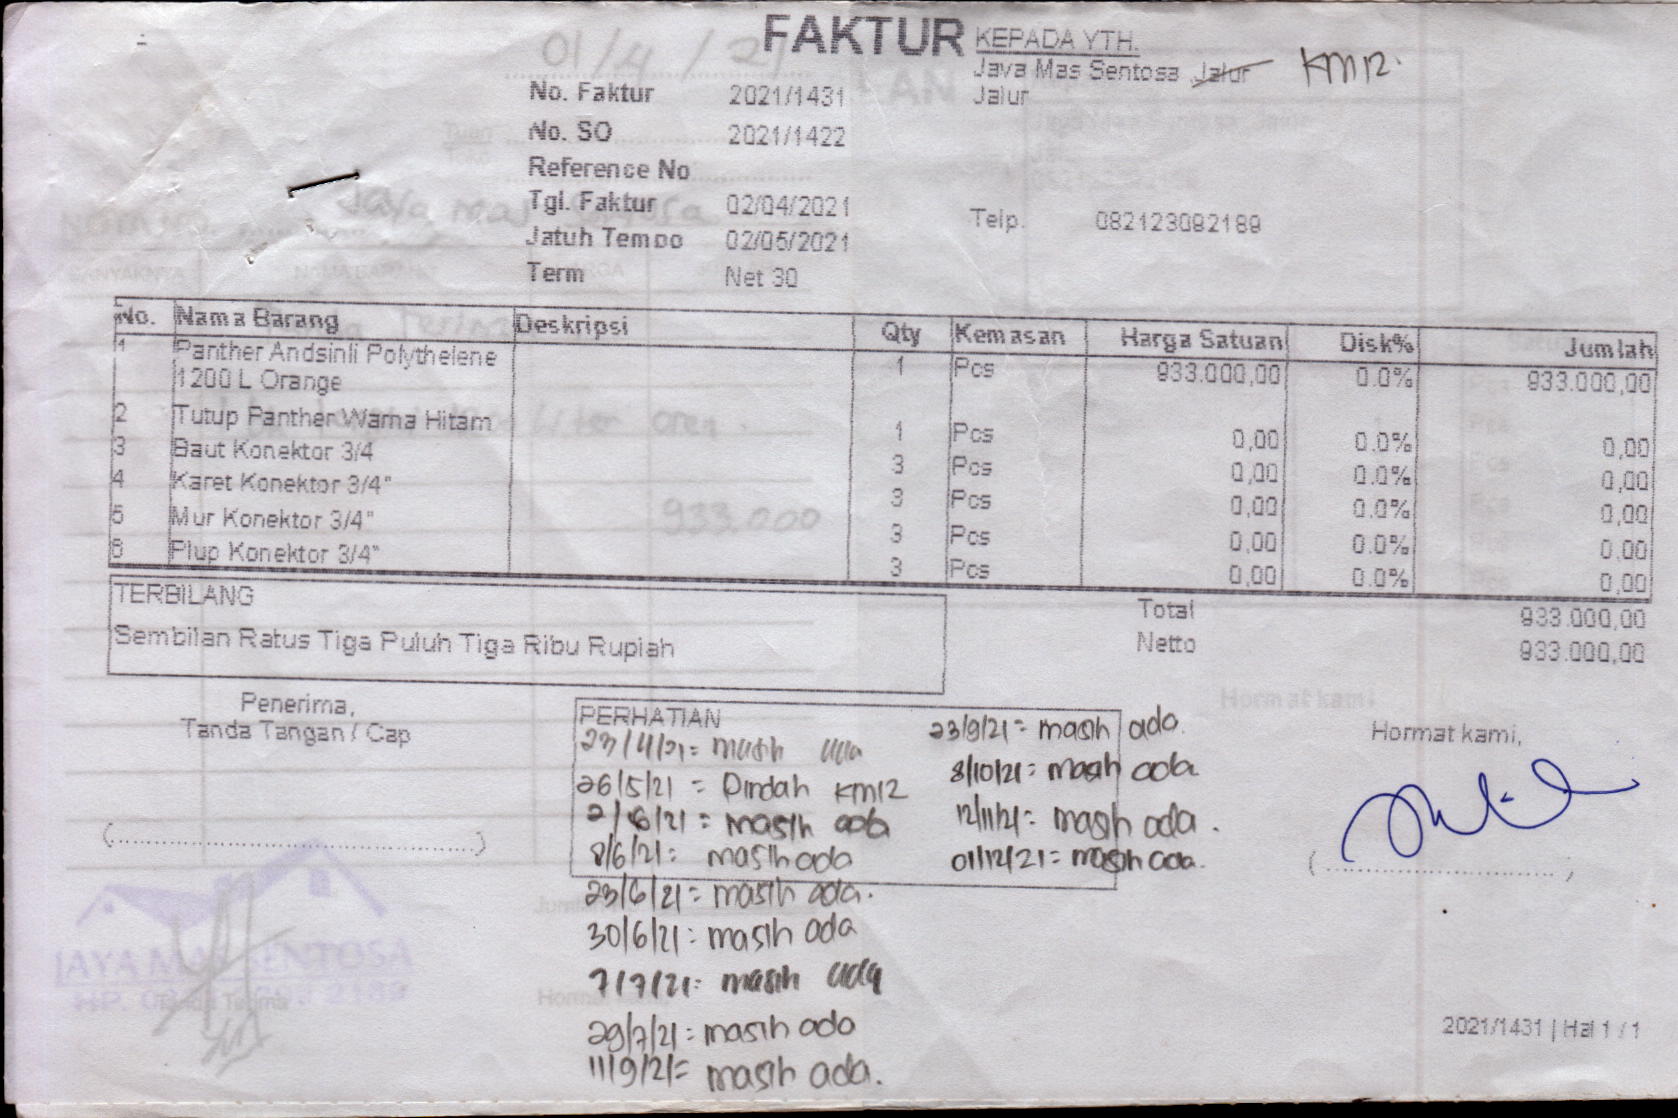 01/4/21
FAKTUR
KEPADA YTH.
Jaya Mas Sentosa Jalur KM12.
Jalur
No. Faktur 2021/1431
No. SO 2021/1422
Reference No
Tgl. Faktur 02/04/2021
Jatuh Tempo 02/05/2021
Term Net 30
Telp. 082123092189
No. Nama Barang Deskripsi Qty Kemasan Harga Satuan Disk% Jumlah
1 Panther Andsinli Polythelene 1 Pcs 933.000,00 0.0% 933.000,00
1200 L Orange
2 Tutup Panther Warna Hitam 1 Pcs 0,00 0.0% 0,00
3 Baut Konektor 3/4 3 Pcs 0,00 0.0% 0,00
4 Karet Konektor 3/4" 3 Pcs 0,00 0.0% 0,00
5 Mur Konektor 3/4" 3 Pcs 0,00 0.0% 0,00
6 Plup Konektor 3/4" 3 Pcs 0,00 0.0% 0,00
933.000
TERBILANG
Sembilan Ratus Tiga Puluh Tiga Ribu Rupiah
Total 933.000,00
Netto 933.000,00
Penerima,
Tanda Tangan / Cap
(..........)
PERHATIAN
23/4/21= masih ada
26/5/21 = Pindah KM12
2/6/21 = masih ada
8/6/21: masih ada
23/6/21= masih ada.
30/6/21: masih ada
7/7/21: masih ada
29/7/21: masih ada
11/9/21= masih ada.
23/9/21= masih ada.
8/10/21: masih ada
12/11/21: masih ada.
01/12/21= masih ada.
Hormat kami,
(..........)
JAYA MAS SENTOSA
2021/1431 | Hal 1 / 1